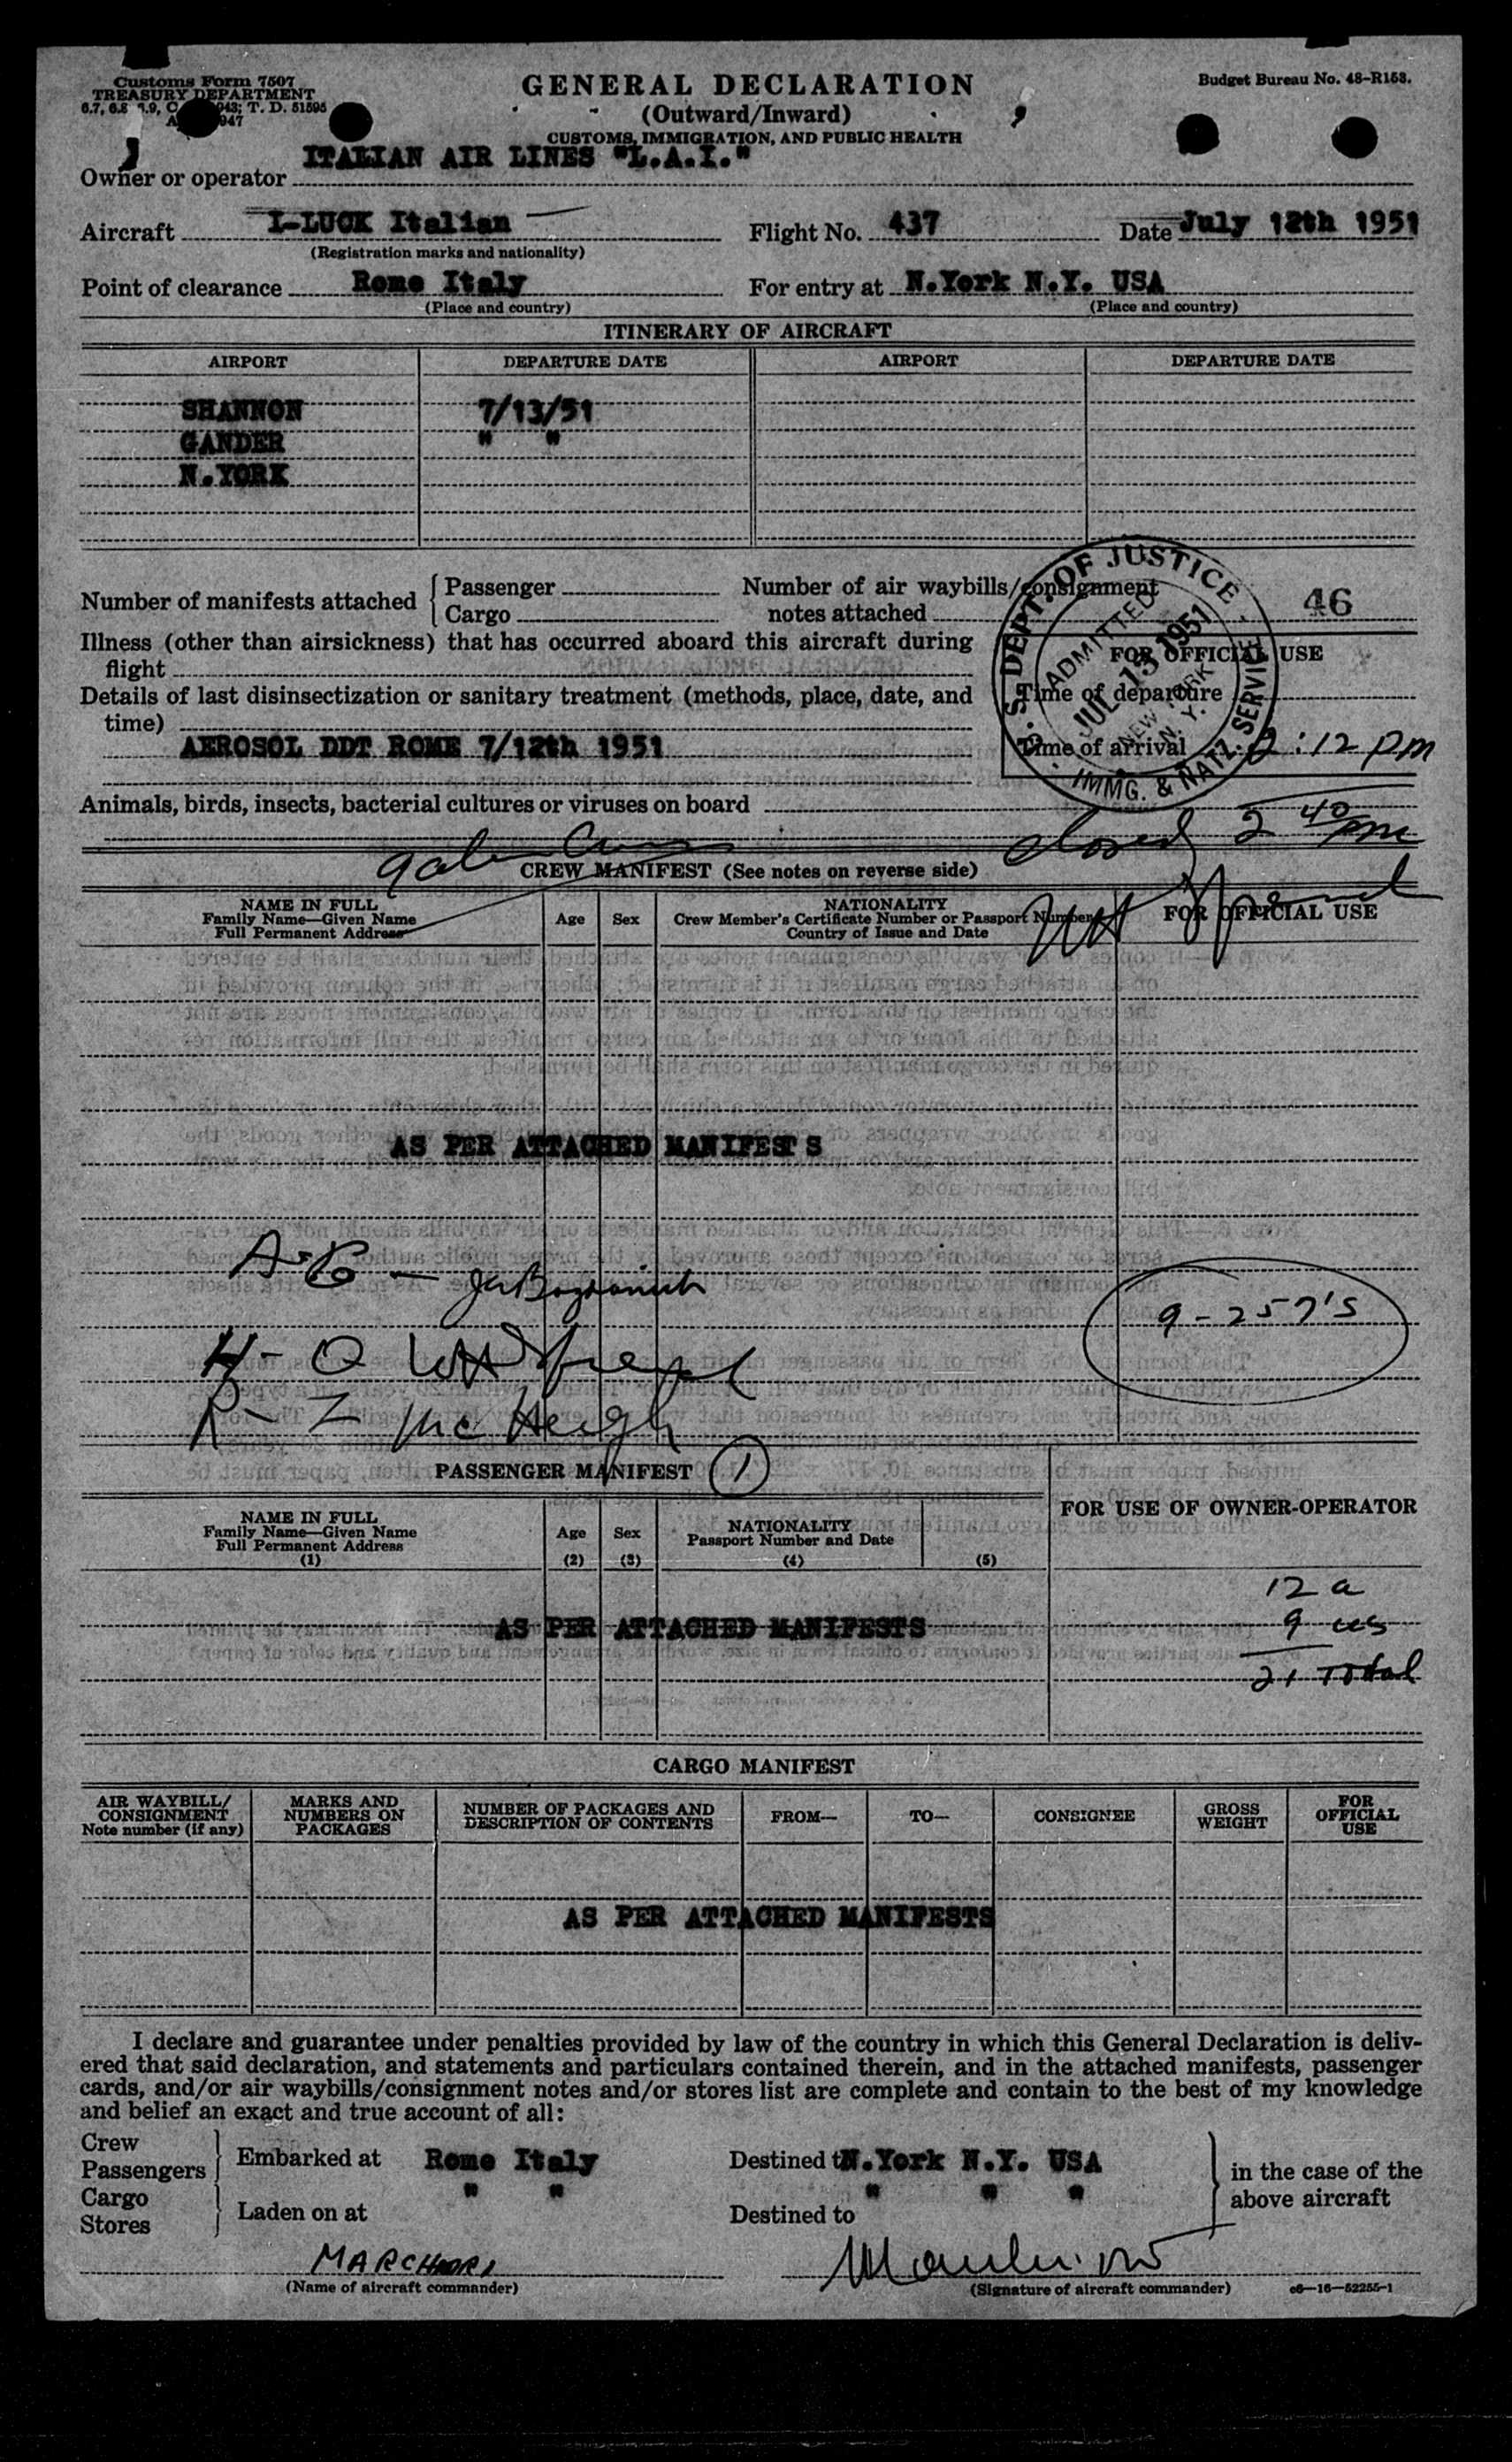 Customs Form 7507
TREASURY DEPARTMENT
T. D. 51595
1947
GENERAL DECLARATION
(Outward/Inward)
CUSTOMS, IMMIGRATION, AND PUBLIC HEALTH
Budget Bureau No. 48-R153.
Owner or operator ITALIAN AIR LINES "L.A.I."
Aircraft I-LUCK Italian Flight No. 437 Date July 12th 1951
(Registration marks and nationality)
Point of clearance Rome Italy For entry at N.York N.Y. USA
(Place and country) (Place and country)
ITINERARY OF AIRCRAFT
AIRPORT DEPARTURE DATE AIRPORT DEPARTURE DATE
SHANNON 7/13/51
GANDER " "
N.YORK
Number of manifests attached { Passenger
Cargo
Number of air waybills/consignment
notes attached
46
Illness (other than airsickness) that has occurred aboard this aircraft during
flight
Details of last disinsectization or sanitary treatment (methods, place, date, and
time)
AEROSOL DDT ROME 7/12th 1951
FOR OFFICIAL USE
Time of departure
Time of arrival 2:12 pm
U. S. DEPT. OF JUSTICE
ADMITTED
JUL 13 1951
NEW YORK
N. Y.
IMMG. & NATZ. SERVICE
Animals, birds, insects, bacterial cultures or viruses on board
closed 2 40 pm
CREW MANIFEST (See notes on reverse side)
NAME IN FULL
Family Name—Given Name
Full Permanent Address
Age Sex
NATIONALITY
Crew Member's Certificate Number or Passport Number
Country of Issue and Date
FOR OFFICIAL USE
AS PER ATTACHED MANIFEST S
9 - 257's
PASSENGER MANIFEST 1
NAME IN FULL
Family Name—Given Name
Full Permanent Address
(1)
Age
(2)
Sex
(3)
NATIONALITY
Passport Number and Date
(4) (5)
FOR USE OF OWNER-OPERATOR
12 a
9
21 Total
AS PER ATTACHED MANIFESTS
CARGO MANIFEST
AIR WAYBILL/
CONSIGNMENT
Note number (if any)
MARKS AND
NUMBERS ON
PACKAGES
NUMBER OF PACKAGES AND
DESCRIPTION OF CONTENTS
FROM— TO— CONSIGNEE
GROSS
WEIGHT
FOR
OFFICIAL
USE
AS PER ATTACHED MANIFESTS
I declare and guarantee under penalties provided by law of the country in which this General Declaration is deliv-
ered that said declaration, and statements and particulars contained therein, and in the attached manifests, passenger
cards, and/or air waybills/consignment notes and/or stores list are complete and contain to the best of my knowledge
and belief an exact and true account of all:
Crew
Passengers } Embarked at Rome Italy Destined to N.York N.Y. USA
Cargo
Stores } Laden on at " " Destined to " " "
in the case of the
above aircraft
(Name of aircraft commander) (Signature of aircraft commander) c6—16—52255-1